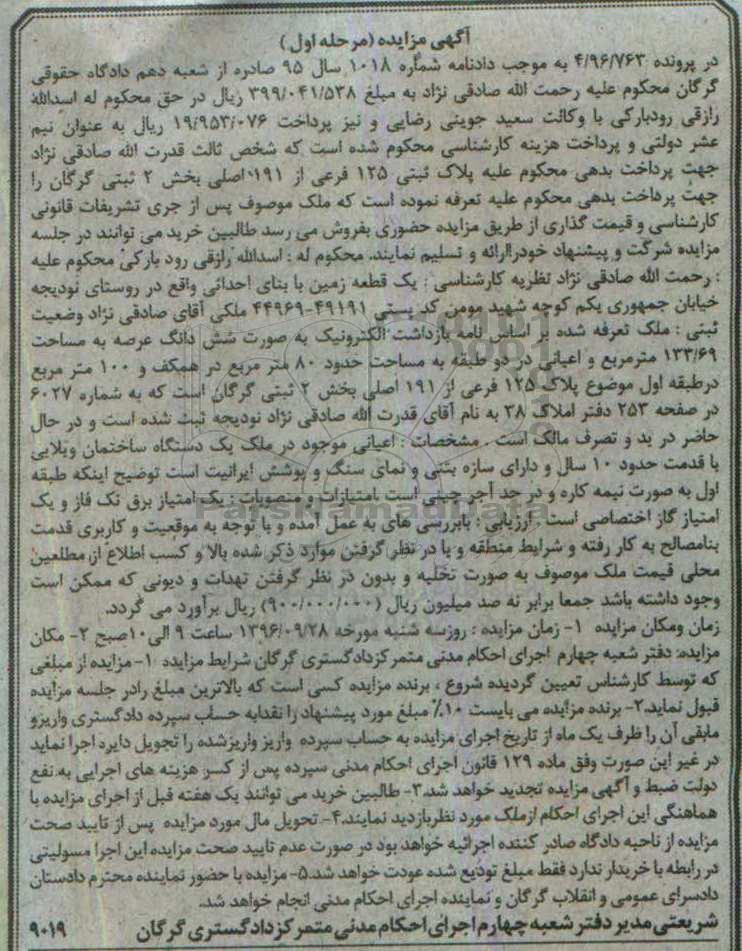 آگهی مزایده (مرحله اول)
در پرونده ۴/۹۶/۷۶۳ به موجب دادنامه شماره ۱۰۱۸ سال ۹۵ صادره از شعبه دهم دادگاه حقوقی
گرگان محکوم علیه رحمت الله صادقی نژاد به مبلغ ۳۹۹/۰۴۱/۵۳۸ ریال در حق محکوم له اسدالله
رازقی رودبارکی با وکالت سعید جوینی رضایی و نیز پرداخت ۱۹/۹۵۳/۰۷۶ ریال به عنوان نیم
عشر دولتی و پرداخت هزینه کارشناسی محکوم شده است که شخص ثالث قدرت الله صادقی نژاد
جهت پرداخت بدهی محکوم علیه پلاک ثبتی ۱۲۵ فرعی از ۱۹۱ اصلی بخش ۲ ثبتی گرگان را
جهت پرداخت بدهی محکوم علیه تعرفه نموده است که ملک موصوف پس از جری تشریفات قانونی
کارشناسی و قیمت گذاری از طریق مزایده حضوری بفروش می رسد طالبین خرید می توانند در جلسه
مزایده شرکت و پیشنهاد خودرا ارائه و تسلیم نمایند. محکوم له : اسدالله رازقی رود بارکی محکوم علیه
: رحمت الله صادقی نژاد نظریه کارشناسی : یک قطعه زمین با بنای احداثی واقع در روستای نودیجه
خیابان جمهوری یکم کوچه شهید مومن کد پستی ۴۹۱۹۱-۴۴۹۶۹ ملکی آقای صادقی نژاد وضعیت
ثبتی : ملک تعرفه شده بر اساس نامه بازداشت الکترونیک به صورت شش دانگ عرصه به مساحت
۱۳۳/۶۹ مترمربع و اعیانی در دو طبقه به مساحت حدود ۸۰ متر مربع در همکف و ۱۰۰ متر مربع
درطبقه اول موضوع پلاک ۱۲۵ فرعی از ۱۹۱ اصلی بخش ۲ ثبتی گرگان است که به شماره ۶۰۲۷
در صفحه ۲۵۳ دفتر املاک ۳۸ به نام آقای قدرت الله صادقی نژاد نودیجه ثبت شده است و در حال
حاضر در ید و تصرف مالک است . مشخصات : اعیانی موجود در ملک یک دستگاه ساختمان ویلایی
با قدمت حدود ۱۰ سال و دارای سازه بتنی و نمای سنگ و پوشش ایرانیت است توضیح اینکه طبقه
اول به صورت نیمه کاره و در حد آجر چینی است .امتیازات و منصوبات : یک امتیاز برق تک فاز و یک
امتیاز گاز اختصاصی است . ارزیابی : بابررسی های به عمل آمده و با توجه به موقعیت و کاربری قدمت
بنامصالح به کار رفته و شرایط منطقه و با در نظر گرفتن موارد ذکر شده بالا و کسب اطلاع از مطلعین
محلی قیمت ملک موصوف به صورت تخلیه و بدون در نظر گرفتن تهدات و دیونی که ممکن است
وجود داشته باشد جمعا برابر نه صد میلیون ریال (۹۰۰/۰۰۰/۰۰۰) ریال برآورد می گردد.
زمان ومکان مزایده ۱- زمان مزایده : روزسه شنبه مورخه ۱۳۹۶/۰۹/۲۸ ساعت ۹ الی۱۰صبح ۲- مکان
مزایده: دفتر شعبه چهارم اجرای احکام مدنی متمرکزدادگستری گرگان شرایط مزایده ۱- مزایده از مبلغی
که توسط کارشناس تعیین گردیده شروع ، برنده مزایده کسی است که بالاترین مبلغ رادر جلسه مزایده
قبول نماید.۲- برنده مزایده می بایست ۱۰٪ مبلغ مورد پیشنهاد را نقدابه حساب سپرده دادگستری واریزو
مابقی آن را ظرف یک ماه از تاریخ اجرای مزایده به حساب سپرده واریز واریزشده را تحویل دایره اجرا نماید
در غیر این صورت وفق ماده ۱۲۹ قانون اجرای احکام مدنی سپرده پس از کسر هزینه های اجرایی به نفع
دولت ضبط و آگهی مزایده تجدید خواهد شد.۳- طالبین خرید می توانند یک هفته قبل از اجرای مزایده با
هماهنگی این اجرای احکام ازملک مورد نظربازدید نمایند.۴- تحویل مال مورد مزایده پس از تایید صحت
مزایده از ناحیه دادگاه صادر کننده اجرائیه خواهد بود در صورت عدم تایید صحت مزایده این اجرا مسولیتی
در رابطه با خریدار ندارد فقط مبلغ تودیع شده عودت خواهد شد.۵- مزایده با حضور نماینده محترم دادستان
دادسرای عمومی و انقلاب گرگان و نماینده اجرای احکام مدنی انجام خواهد شد.
شریعتی مدیر دفتر شعبه چهارم اجرای احکام مدنی متمرکز دادگستری گرگان ۹۰۱۹
ParsNamadData